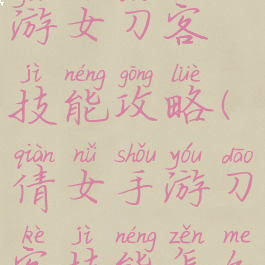 游女刀客
jì néng gōng lüè
技能攻略(
qiàn nǚ shǒu yóu dāo
倩女手游刀
kè jì néng zěn me
客技能怎么